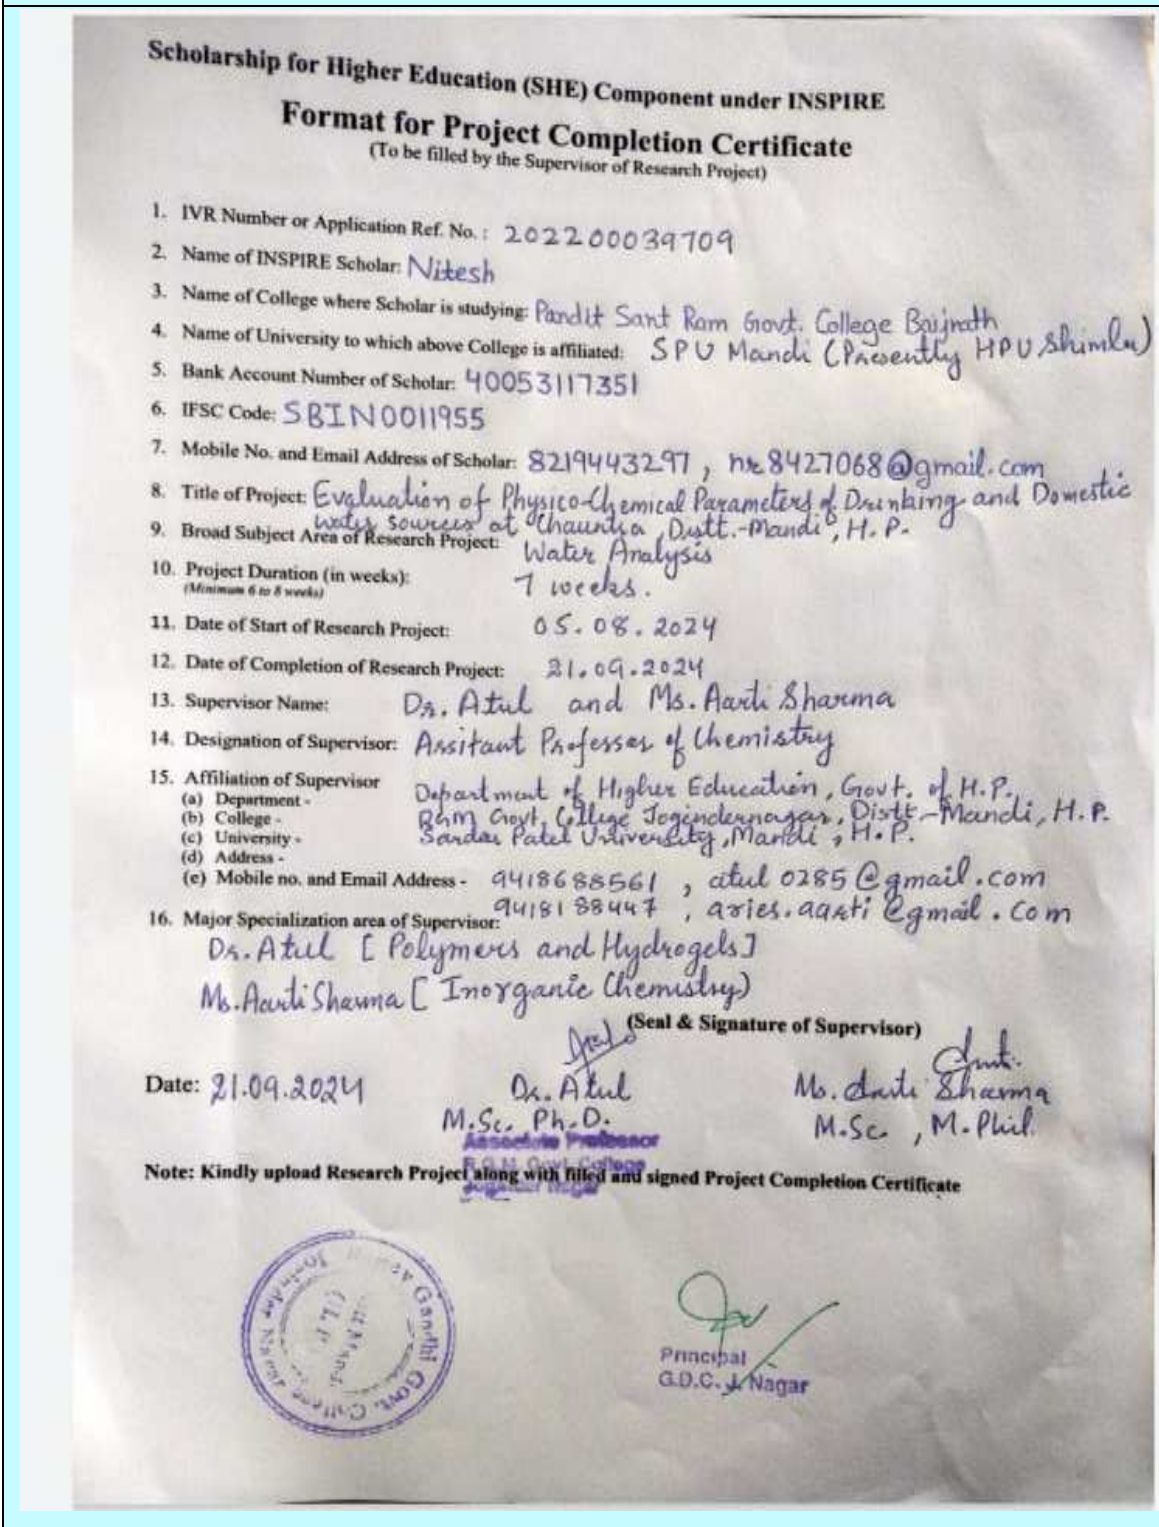 Scholarship for Higher Education (SHE) Component under INSPIRE
Format for Project Completion Certificate
(To be filled by the Supervisor of Research Project)
1. IVR Number or Application Ref. No. : 202200039709
2. Name of INSPIRE Scholar: Nitesh
3. Name of College where Scholar is studying: Pandit Sant Ram Govt. College Baijnath
4. Name of University to which above College is affiliated: SPU Mandi (Presently HPU Shimla)
5. Bank Account Number of Scholar: 40053117351
6. IFSC Code: SBIN0011955
7. Mobile No. and Email Address of Scholar: 8219443297 , nr8427068@gmail.com
8. Title of Project: Evaluation of Physico-Chemical Parameters of Drinking and Domestic
Water sources at Chauntra, Distt.-Mandi, H.P.
9. Broad Subject Area of Research Project: Water Analysis
10. Project Duration (in weeks): 7 weeks.
(Minimum 6 to 8 weeks)
11. Date of Start of Research Project: 05.08.2024
12. Date of Completion of Research Project: 21.09.2024
13. Supervisor Name: Dr. Atul and Ms. Aarti Sharma
14. Designation of Supervisor: Assitant Professor of Chemistry
15. Affiliation of Supervisor
(a) Department - Department of Higher Education, Govt. of H.P.
(b) College - RGM Govt. College Jogindernagar, Distt.-Mandi, H.P.
(c) University - Sardar Patel University, Mandi, H.P.
(d) Address -
(e) Mobile no. and Email Address - 9418688561 , atul0285@gmail.com
9418188447 , aries.aarti@gmail.com
16. Major Specialization area of Supervisor:
Dr. Atul [Polymers and Hydrogels]
Ms. Aarti Sharma [Inorganic Chemistry)
(Seal & Signature of Supervisor)
Date: 21.09.2024
Dr. Atul
M.Sc. Ph.D.
Ms. Aarti Sharma
M.Sc. , M.Phil.
Associate Professor
R.G.M. Govt. College
Note: Kindly upload Research Project along with filled and signed Project Completion Certificate
Gandhi Govt. College
Principal
G.D.C. J. Nagar